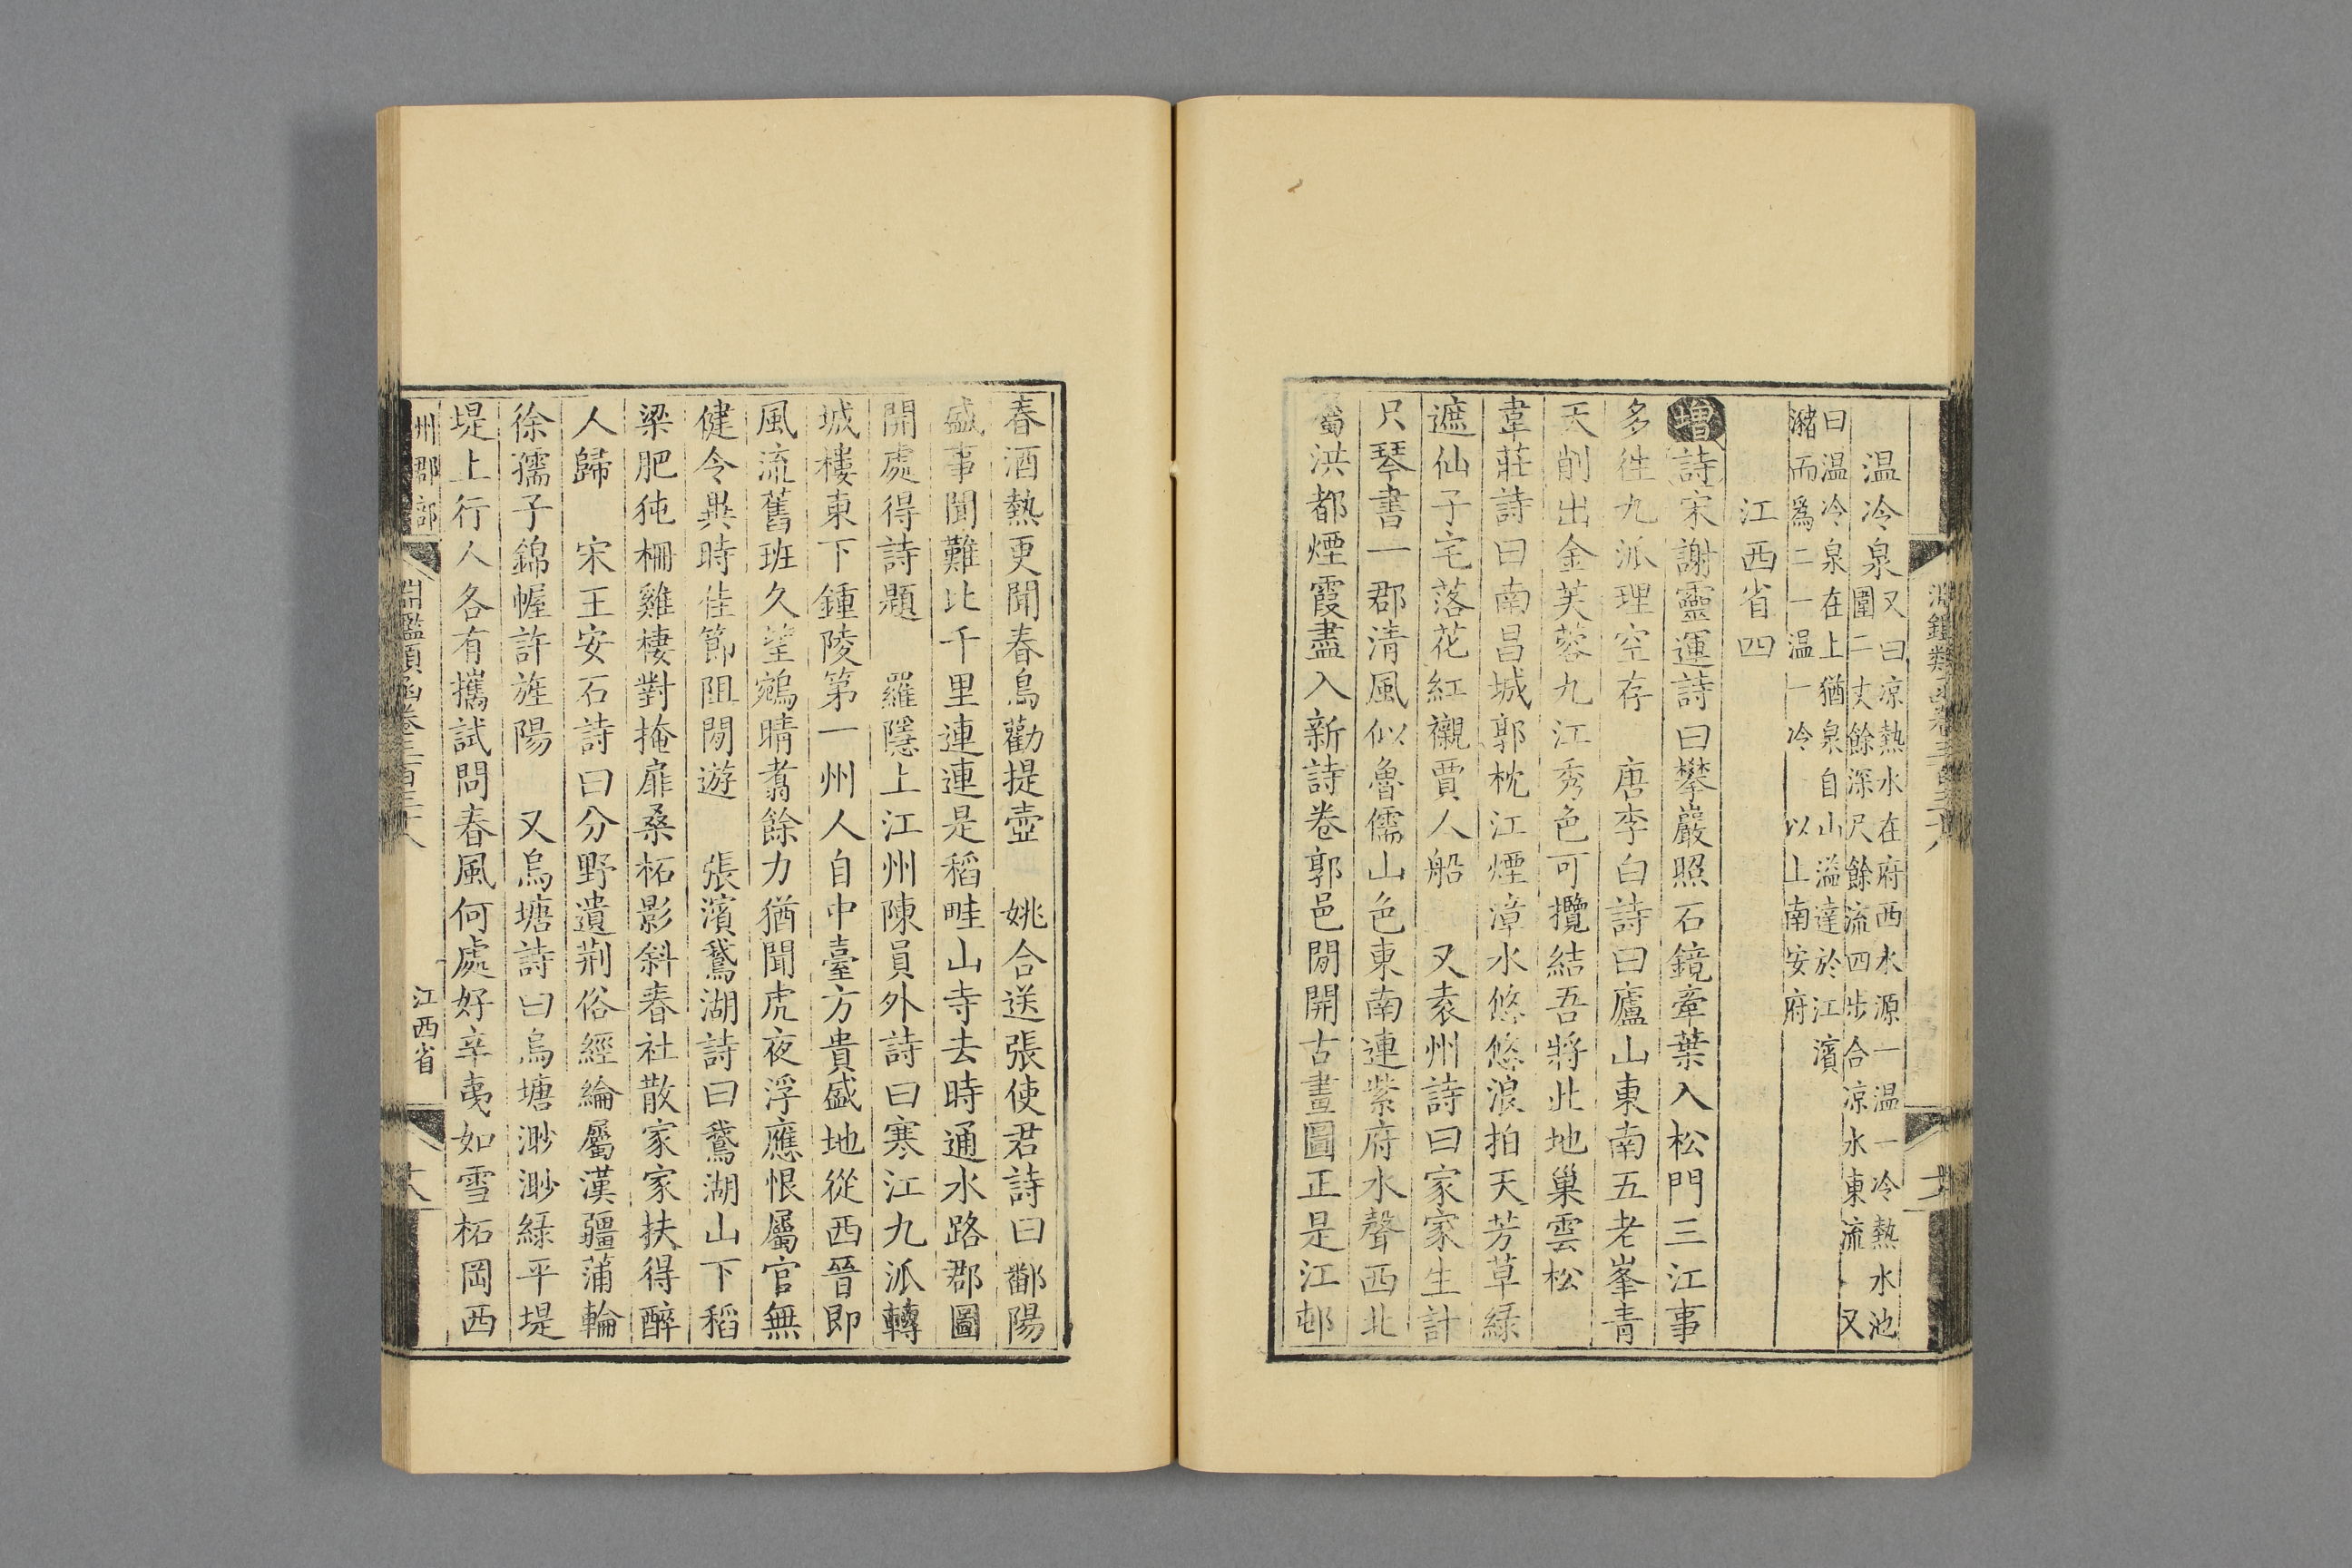 温冷泉又曰凉熱水在府西水源一温一冷熱水池
圍二丈餘深尺餘流四步合凉水東流又
曰温冷泉在上猶泉自山溢達於江濱
瀦而爲二一温一冷 以上南安府
江西省四
增詩宋謝靈運詩曰攀巖照石鏡牽葉入松門三江事
多往九派理空存 唐李白詩曰廬山東南五老峯青
天削出金芙蓉九江秀色可攬結吾將此地巢雲松
韋莊詩曰南昌城郭枕江煙漳水悠悠浪拍天芳草綠
遮仙子宅落花紅襯賈人船 又袁州詩曰家家生計
只琴書一郡清風似魯儒山色東南連紫府水聲西北
屬洪都煙霞盡入新詩卷郭邑閒開古畫圖正是江邨
春酒熱更聞春鳥勸提壺 姚合送張使君詩曰鄱陽
盛事聞難比千里連連是稻畦山寺去時通水路郡圖
開處得詩題 羅隱上江州陳員外詩曰寒江九派轉
城樓東下鍾陵第一州人自中臺方貴盛地從西晉即
風流舊班久望鵷晴翥餘力猶聞虎夜浮應恨屬官無
健令異時佳節阻閒遊 張濱鵞湖詩曰鵞湖山下稻
梁肥㹠栅雞棲對掩扉桑柘影斜春社散家家扶得醉
人歸 宋王安石詩曰分野遺荆俗經綸屬漢疆蒲輪
徐孺子錦幄許旌陽 又烏塘詩曰烏塘渺渺綠平堤
堤上行人各有攜試問春風何處好辛夷如雪柘岡西
州郡部
淵鑑類函卷三百三十八
江西省